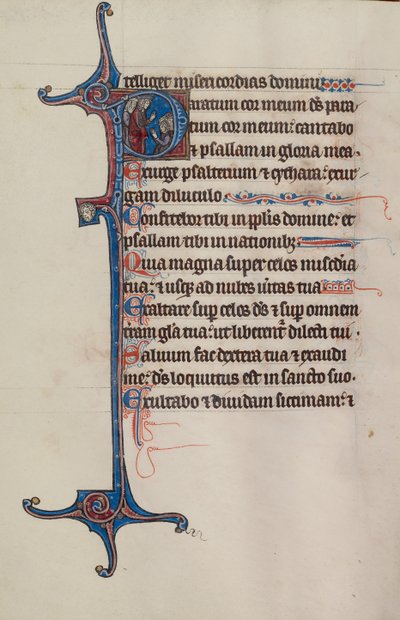 telliget misericordias domini
Paratum cor meum ds para
tum cor meum: cantabo
& psallam in gloria mea.
Exurge psalterium & cythara: exur
gam diluculo.
Confitebor tibi in pplis domine: et
psallam tibi in nationib;
Quia magna super celos misc̄dia
tua: & usq; ad nubes ūitas tua
Exaltare sup celos ds & sup omnem
trām gl̄a tua: ut liberent᷑ dilecti tui.
Saluum fac dextera tua & exaudi
me: ds loquutus est in sancto suo.
Exultabo & diuidam sicimam: &